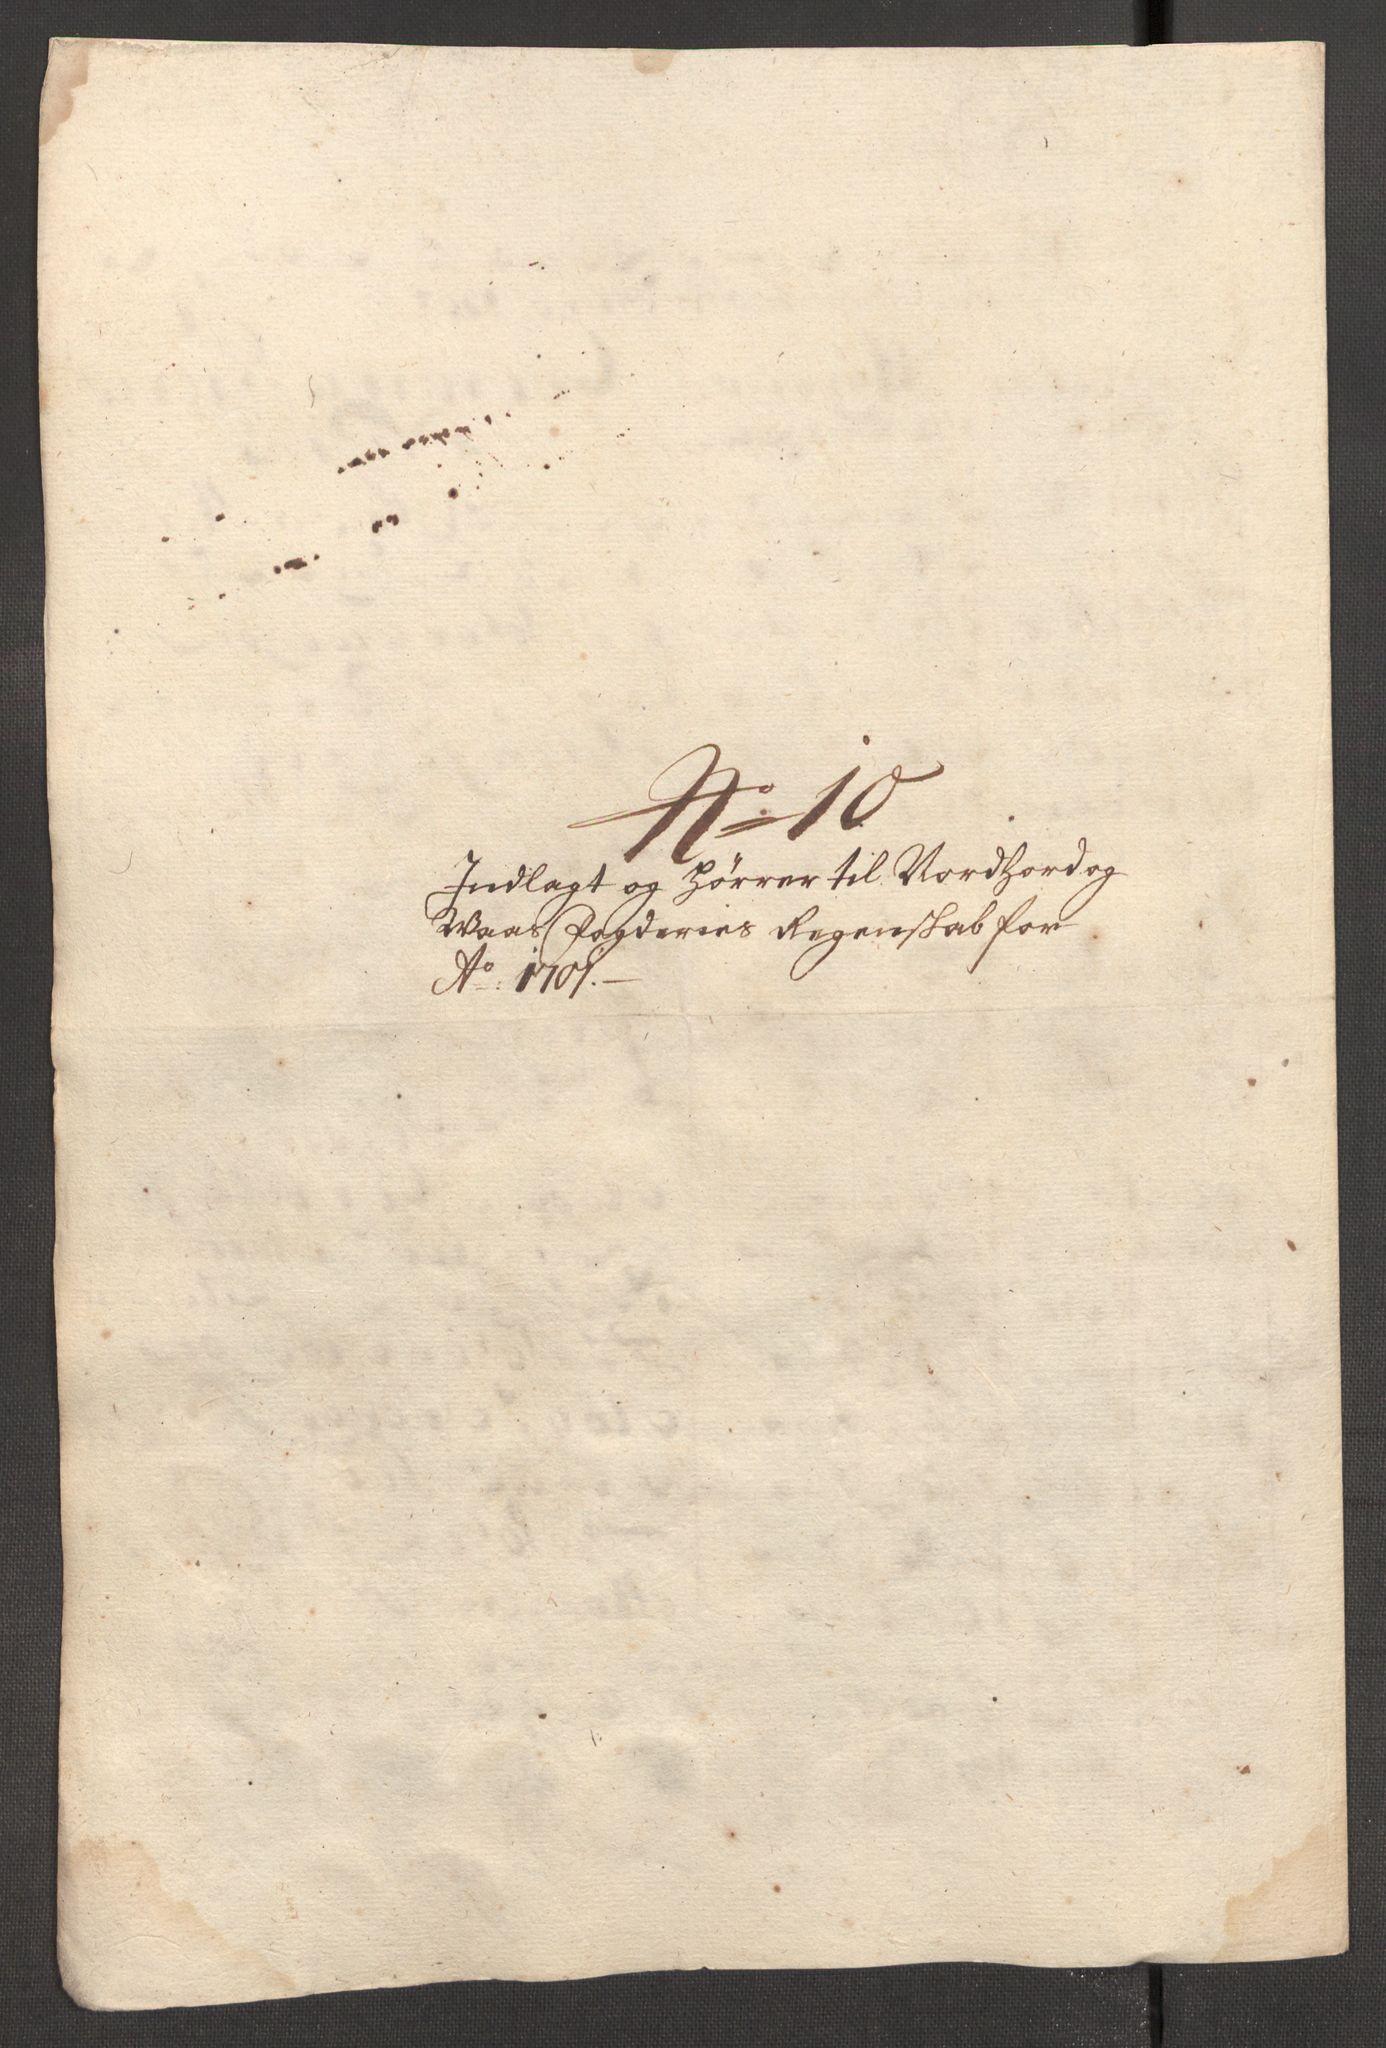 No 10
Indlagt og hörrer til Nordhord og
Waas Fogderies Regenskab for
Ao: 1701.